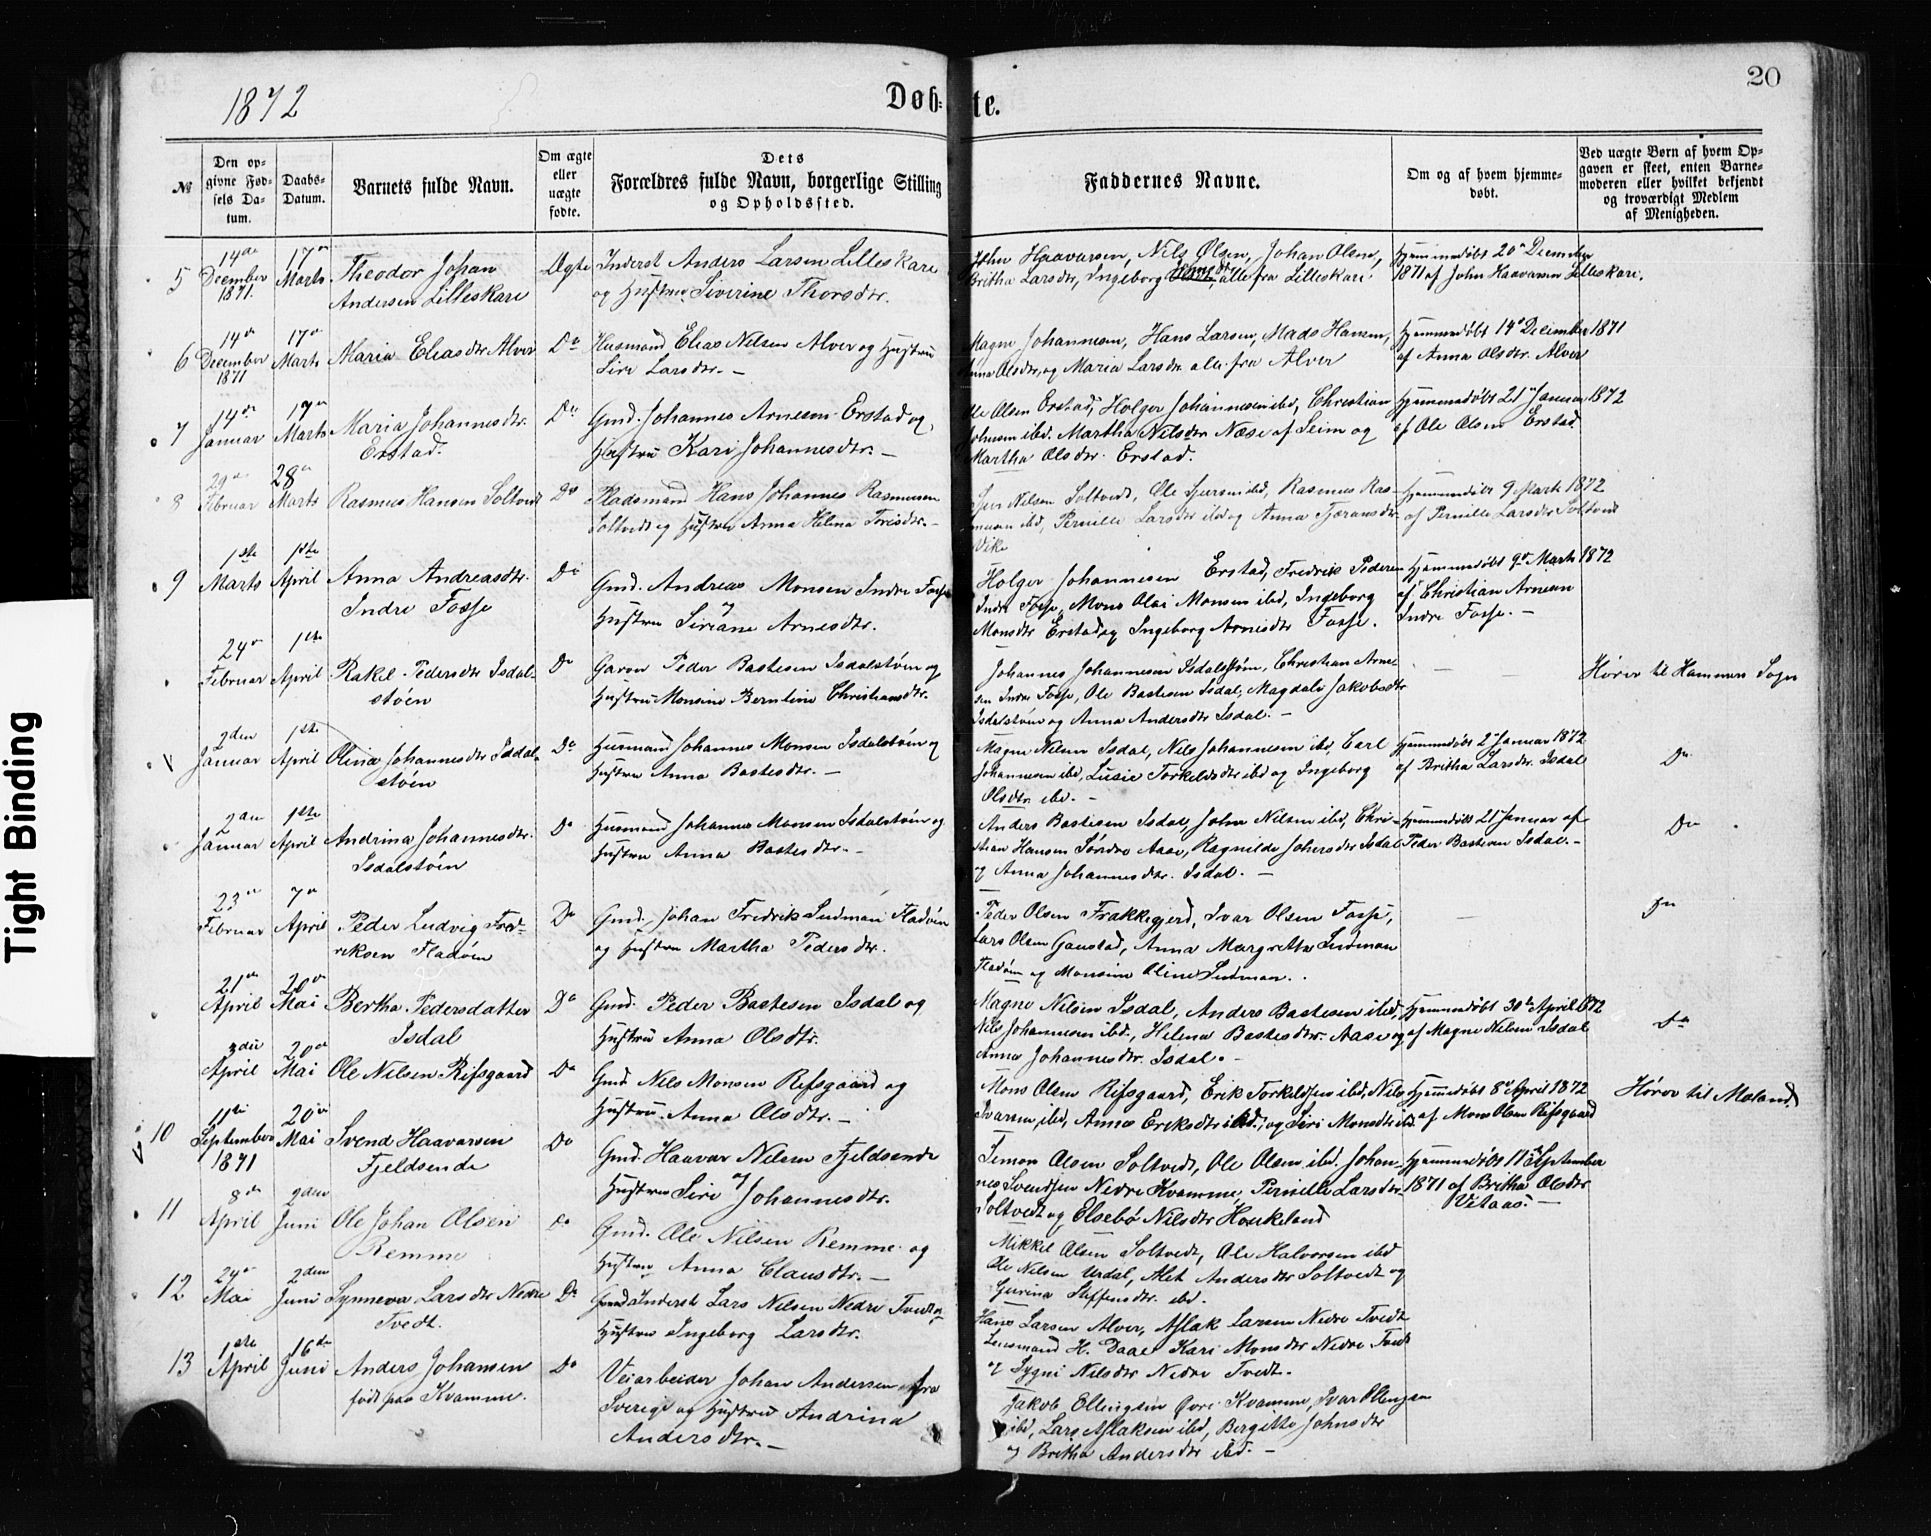 Tight Binding
1872
Døb-
te.
20
№
Den op-
givne Fød-
sels Da-
tum.
Daabs-
Datum.
Barnets fulde Navn.
Om ægte
eller
uægte
fødte.
Dets
Forældres fulde Navn, borgerlige Stilling
og Opholdssted.
Faddernes Navne.
Om og af hvem hjemme-
døbt.
Ved uægte Børn af hvem Op-
gaven er skeet, enten Barne-
moderen eller hvilket bekjendt
og troværdigt Medlem
af Menigheden.
5
14de
December
1871.
17de
Marts
Theodor Johan
Andersen Lilleskare
Ægte
Inderst Anders Larsen Lilleskare
og Hustru Siverine Thorsdtr.
John Haavarsen, Nils Olsen, Johan Olsen,
Britha Larsdtr, Ingeborg alle fra Lilleskare
Hjemmedøbt 20de December
1871 af John Haavarsen Lilleskare.
6
14de
December
1871
17de
Marts
Maria Eliasdtr Alver
Do
Husmand Elias Nilsen Alver og Hustru
Siri Larsdtr. -
Magne Johannesen, Hans Larsen, Mads Hansen,
Anna Olsdtr, og Maria Larsdtr alle fra Alver
Hjemmedøbt 14de December 1871
af Anna Olsdtr. Alver
7
14de
Januar
17de
Marts
Maria Johannesdtr.
Erstad.
Do
Gmd. Johannes Arnesen Erstad og
Hustru Kari Johannesdtr. -
Ole Olsen Erstad, Holger Johannesen ibd, Christian
Johnsen ibd. Martha Nilsdtr Næse af Seim og
Martha Olsdtr. Erstad.
Hjemmedøbt 21de Januar 1872
af Ole Olsen Erstad.
8
29de
Februar
28de
Marts
Rasmus Hansen Soltvedt
Do
Pladsmand Hans Johannes Rasmussen
Soltvedt og Hustru Anna Helena
Sjur Nilsen Soltvedt, Ole Sjursen ibd, Rasmus Ras-
musen ibd, Pernille Larsdtr ibd og Anna
Vike
Hjemmedøbt 9 Marts 1872
af Pernille Larsdtr Soltvedt
9
1ste
Marts
1ste
April
Anna Andreasdtr.
Indre Fosse
Do
Gmd. Andreas Monsen Indre Fosse
Hustru Siriane Arnesdtr.
Holger Johannesen Erstad, Fredrik Pedersen
Indre Fosse, Mons Olai Monsen ibd, Ingeborg
Monsdtr Erstad og Ingeborg Arnesdtr Fosse.
Hjemmedøbt 9de Marts 1872
af Christian Arnesen
Indre Fosse. -
24de
Februar
1ste
April
Rakel Pedersdtr Isdal-
støen
Do
Garver Peder Bastesen Isdalstøen og
Hustru Monsine Berntine Christiansdtr.
Johannes Johannesen Isdalstøen, Christian Arne-
sen Indre Fosse, Ole Bastesen Isdal, Magdali Jakobsdtr
Isdalstøen og Anna Andersdtr Isdal. -
Hører til Hammers Sogn
2den
Januar
1ste
April
Olina Johannesdtr Isdal-
støen
Do
Husmand Johannes Monsen Isdalstøen og
Hustru Anna Bastesdtr. -
Magne Nilsen Isdal, Nils Johannesen ibd, Carl
Johannesen ibd, Lusie Torkeldsdtr ibd og Ingeborg
Olsdtr. ibd. -
Hjemmedøbt 2de Januar 1872
af Britha Larsdtr. Isdal
Do
2den
Januar
1ste
April
Andrina Johannesdtr.
Isdalstøen
Do
Husmand Johannes Monsen Isdalstøen og
Hustru Anna Bastesdtr. -
Anders Bastesen Isdal, John Nilsen ibd, Chri-
stian Hansen Søndre Aase, Ragnilde Johnsdtr Isdal
og Anna Johannesdtr. Isdal. -
Hjemmedøbt 21de Januar af
Peder Bastesen Isdal. -
Do
23de
Februar
7de
April
Peder Ludvig Fred-
riksen Fladøen
Do
Gmd. Johan Fredrik Ludman Fladøen
og Hustru Martha Pedersdtr.
Peder Olsen Frakkegjerd, Ivar Olsen Fosse,
Lars Olsen Gaustad, Anna Margrethe Ludman
Fladøen og Monsine Oline Ludman.
Do
21de
April
20de
Mai
Bertha Pedersdatter
Isdal
Do
Gmd. Peder Bastesen Isdal og
Hustru Anna Olsdtr.
Magne Nilsen Isdal, Anders Bastesen ibd,
Nils Johannesen ibd, Helena Bastesdtr. Aase og
Anna Johannesdtr. Isdal. -
Hjemmedøbt 30te April 1872
af Magne Nilsen Isdal
Do
3die
April
20de
Mai
Ole Nilsen Rifsgaard
Do
Gmd. Nils Monsen Refsgaard og
Hustru Anna Olsdtr. -
Mons Olsen Rifsgaard, Erik Torkeldsen ibd, Nils
Ivarsen ibd, Anna Eriksdtr ibd., og Siri Monsdtr ibd.
Hjemmedøbt 8de April 1872
af Mons Olsen Rifsgaard
Hører til Moland.
10
11te
September
1871
20de
Mai
Svend Haavarsen
Fjeldsende
Do
Gmd. Haavar Nilsen Fjeldsende
og
Hustru Siri Johannesdtr.
Simon Olsen Soltvedt, Ole Olsen ibd. Johan-
nes Svendsen Nedre Kvamme, Pernille Larsdtr.
Soltvedt og Elsebø Nilsdtr Houkeland
Hjemmedøbt 11te September
1871 af Britha Olsdtr
Vitaas. -
11
8de
April
2den
Juni
Ole Johan Olsen
Remme
Do
Gmd. Ole Nilsen Remme og
Hustru Anna Clausdtr. -
Mikkel Olsen Soltvedt, Ole Halvorsen ibd
Ole Nilsen Urdal, Alet Andersdtr Soltvedt og
Gurina Steffensdtr. ibd.
12
24de
Mai
2den
Juni
Synneva Larsdtr Nedre
Tvedt.
Do
Inderst Lars Nilsen Nedre Tvedt og
Hustru Ingeborg Larsdtr.
Hans Larsen Alver, Aslak Larsen Nedre Tvedt
Lensmand H. Daae, Kari Monsdtr Nedre Tvedt
og Sygni Nilsdtr Nedre Tvedt.
13
1ste
April
16de
Juni
Anders Johansen
født paa Kvamme.
Do
Veiarbeider Johan Andersen fra
Sverige og Hustru Andrina
Andersdtr. -
Jakob Ellingsen Øvre Kvamme, Ivar Ellingsen
ibd, Lars Aslaksen ibd, Bergitte Johnsdtr
og Britha Andersdtr ibd. -